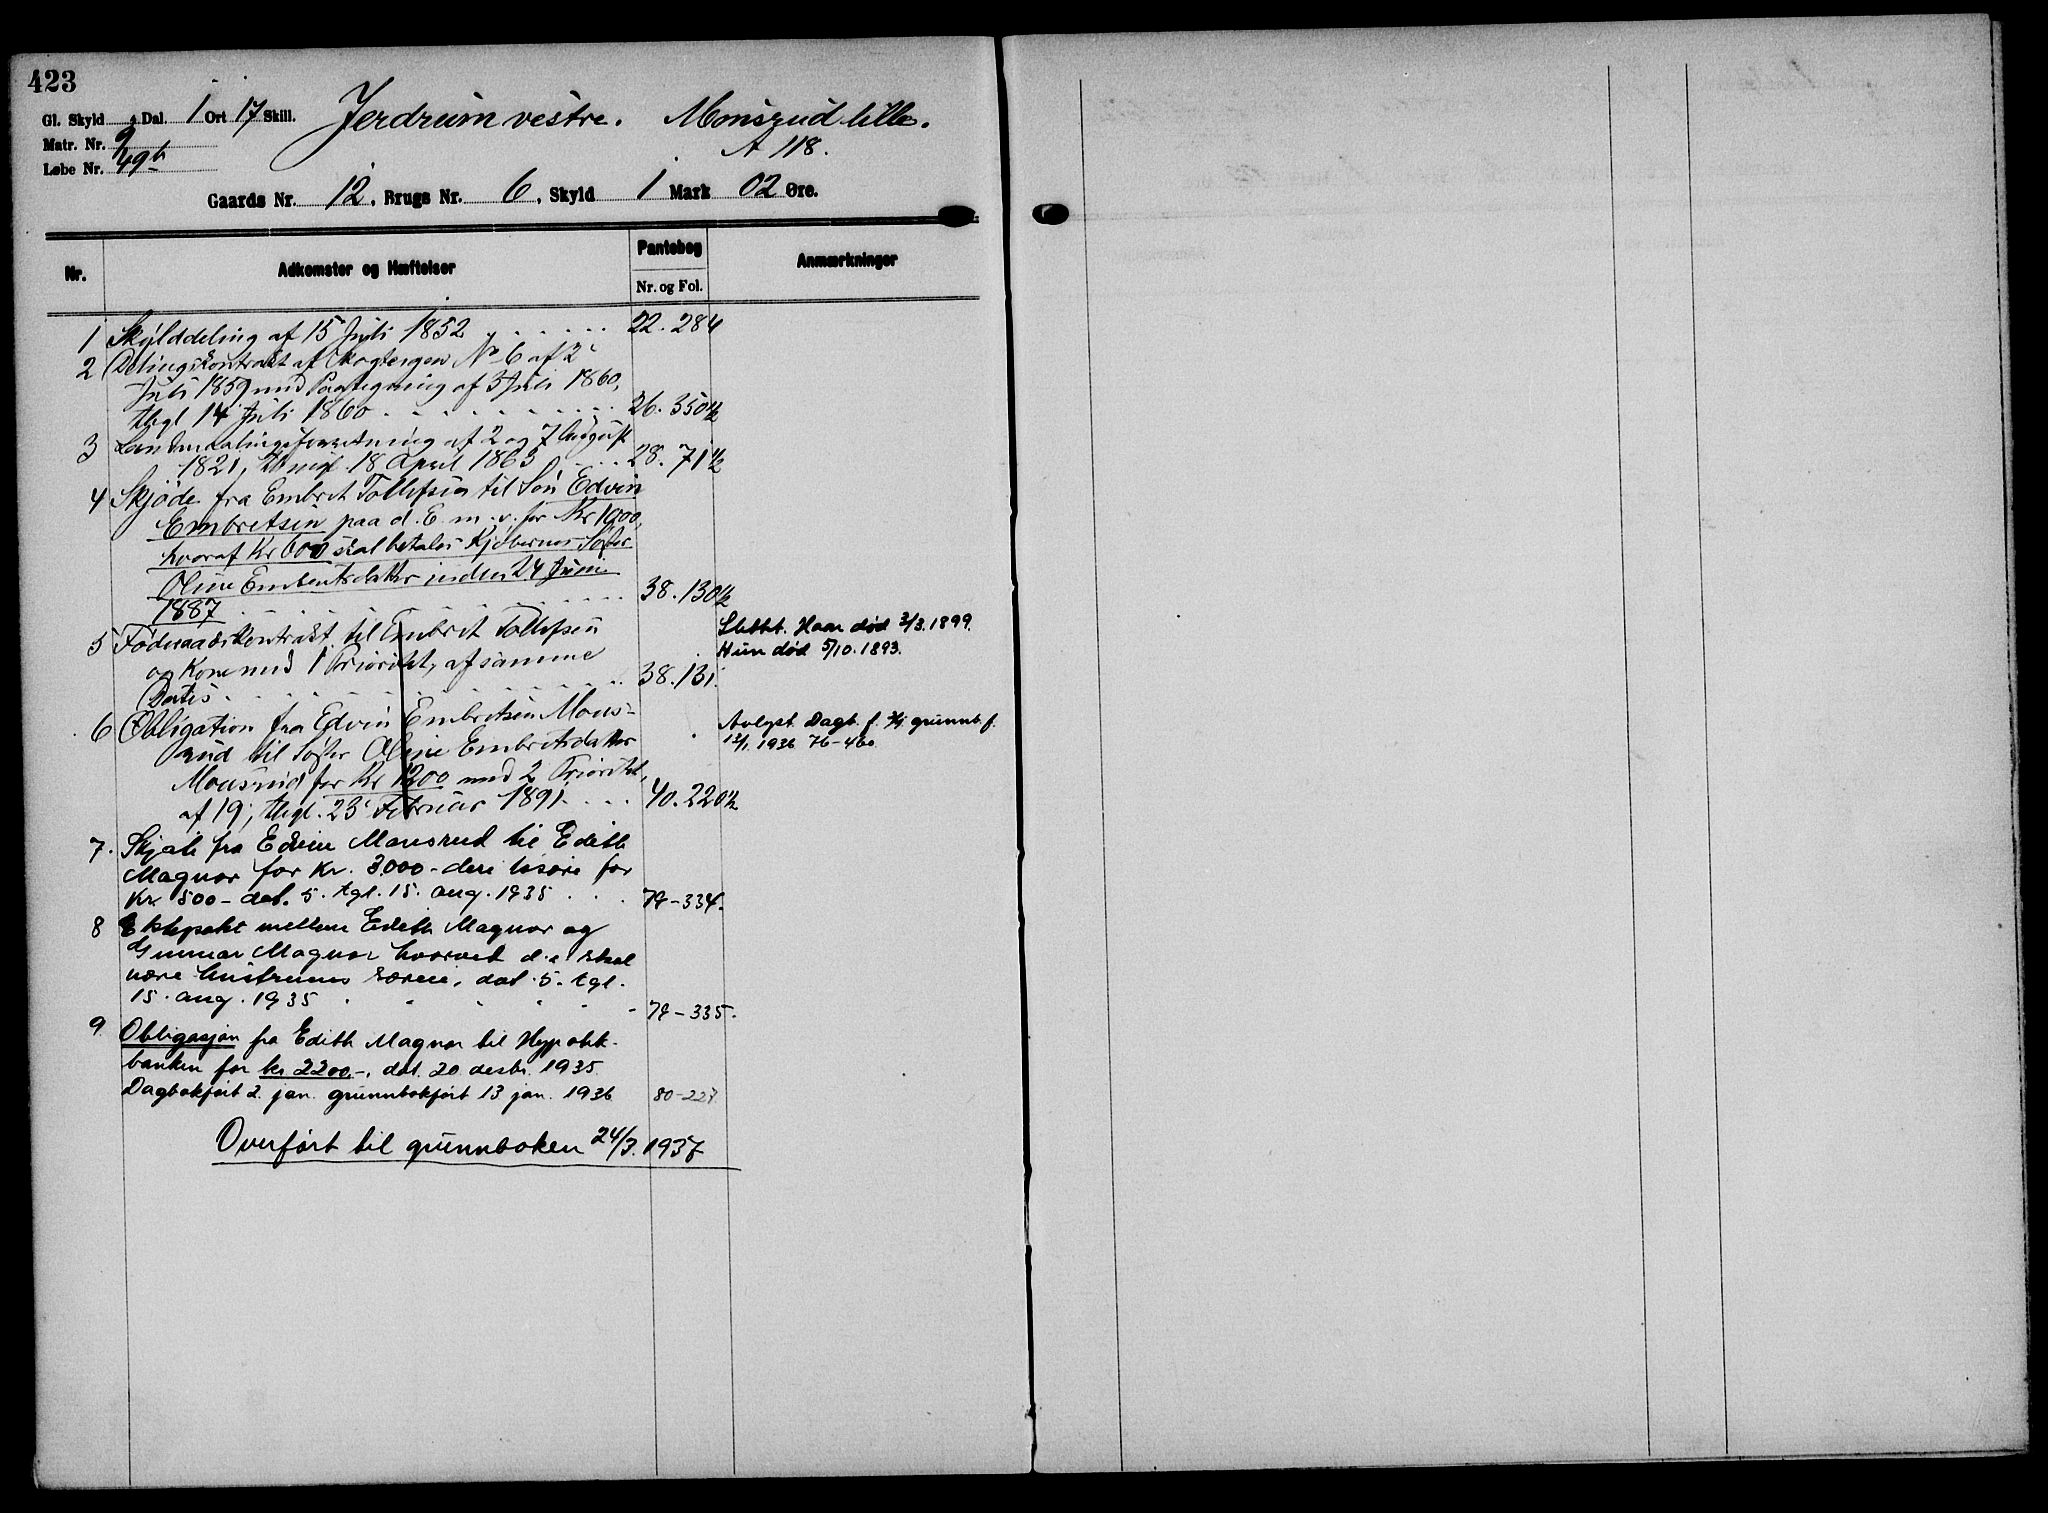 423
Gl. Skyld „ Dal. 1 Ort 17 Skill. Jerdrum vestre. Monsrud lille.
Matr. Nr. 9 A 118.
Løbe Nr. 49b
Gaards Nr. 12, Brugs Nr. 6, Skyld 1 Mark 02 Øre.
Nr. Adkomster og Hæftelser Pantebog Anmærkninger
Nr. og Fol.
1 Skylddeling af 15 Juli 1852 22. 284
2 Delingskontrakt af Skogteigen No 6 af 2
Juli 1859 med Paategning af 3 Juli 1860,
thgl 14 Juli 1860 26. 350½
3 af 2 og 7 August
1821, thingl. 18 April 1863 28. 71½
4 Skjøde fra Embret Tollefsen til Søn Edvin
Embretsen paa d. E. m. v. for Kr 1000,
hvoraf Kr 600 skal betales Kjøberens Søster
Oline Embretsdatter inden 24 Juni
1887 38. 130½
5 Føderaadskontrakt til Embret Tollefsen Slettet. Han død 3/3. 1899.
og Kone med 1 Prioritet, af samme Hun død 5/10. 1893.
Datis 38. 131.
6 Obligation fra Edvin Embretsen Mons- Avlyst. Dagb. f. 2/1 grunnb. f.
rud til Søster Oline Embretsdatter 13/1 1936 76-460
Monsrud for Kr 1200 med 2 Prioritet,
af 19, thgl. 23 Februar 1891. 40. 220½
7. Skjøte fra Edvin Monsrud til Edith
Magnor for kr. 3.000 - derav løsøre for
Kr. 500 - dat. 5. tgl. 15. aug. 1935 79-334.
8 Ektepakt mellem Edith Magnor og
Gunnar Magnor hvorved d. e. skal
være hustruens særeie, dat. 5. tgl.
15. aug. 1935 79-335.
9. Obligasjon fra Edith Magnor til Hypotek-
banken for kr 2200.-, dat. 20. desbr. 1935.
Dagbokført 2. jan. grunnbokført 13 jan. 1936 80-227.
Overført til grunnboken 24/3. 1937